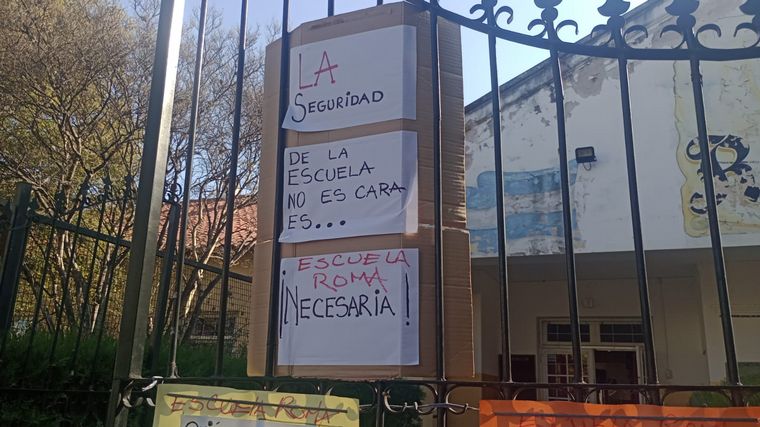 LA
SEGURIDAD
DE LA
ESCUELA
NO ES CARA
ES...
ESCUELA
ROMA
¡NECESARIA!
ESCUELA ROMA